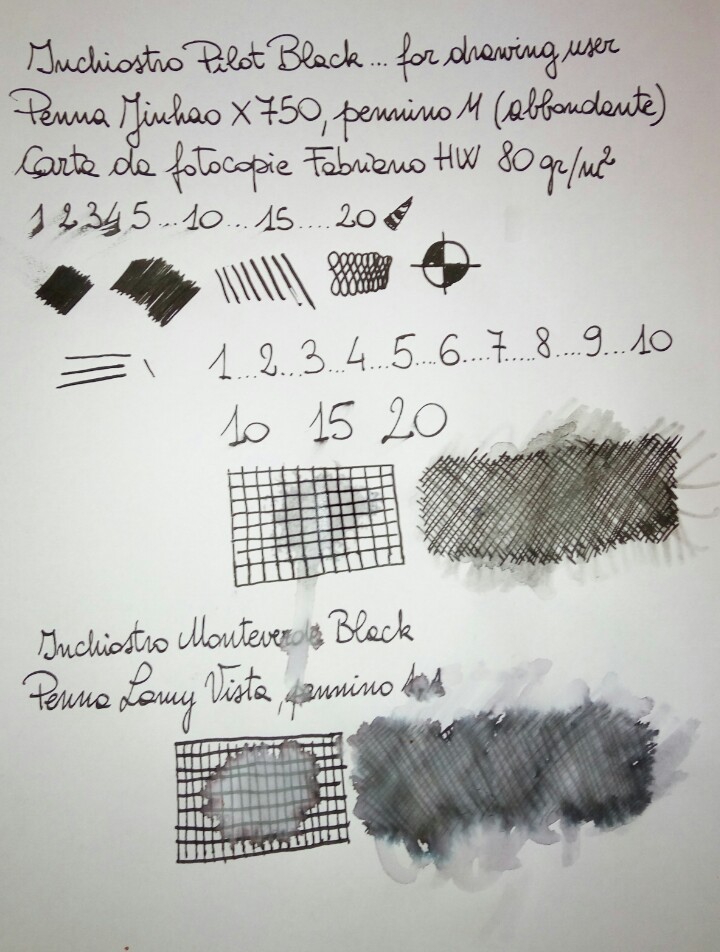 Inchiostro Pilot Black... for drawing user
Penna Jinhao X750, pennino M (abbondante)
Carta da fotocopie Fabriano HW 80 gr/m²
1 2 3 4 5...10...15....20
1...2...3...4...5...6....7....8....9...10
10 15 20
Inchiostro Monteverde Black
Penna Lamy Vista, pennino 1,1